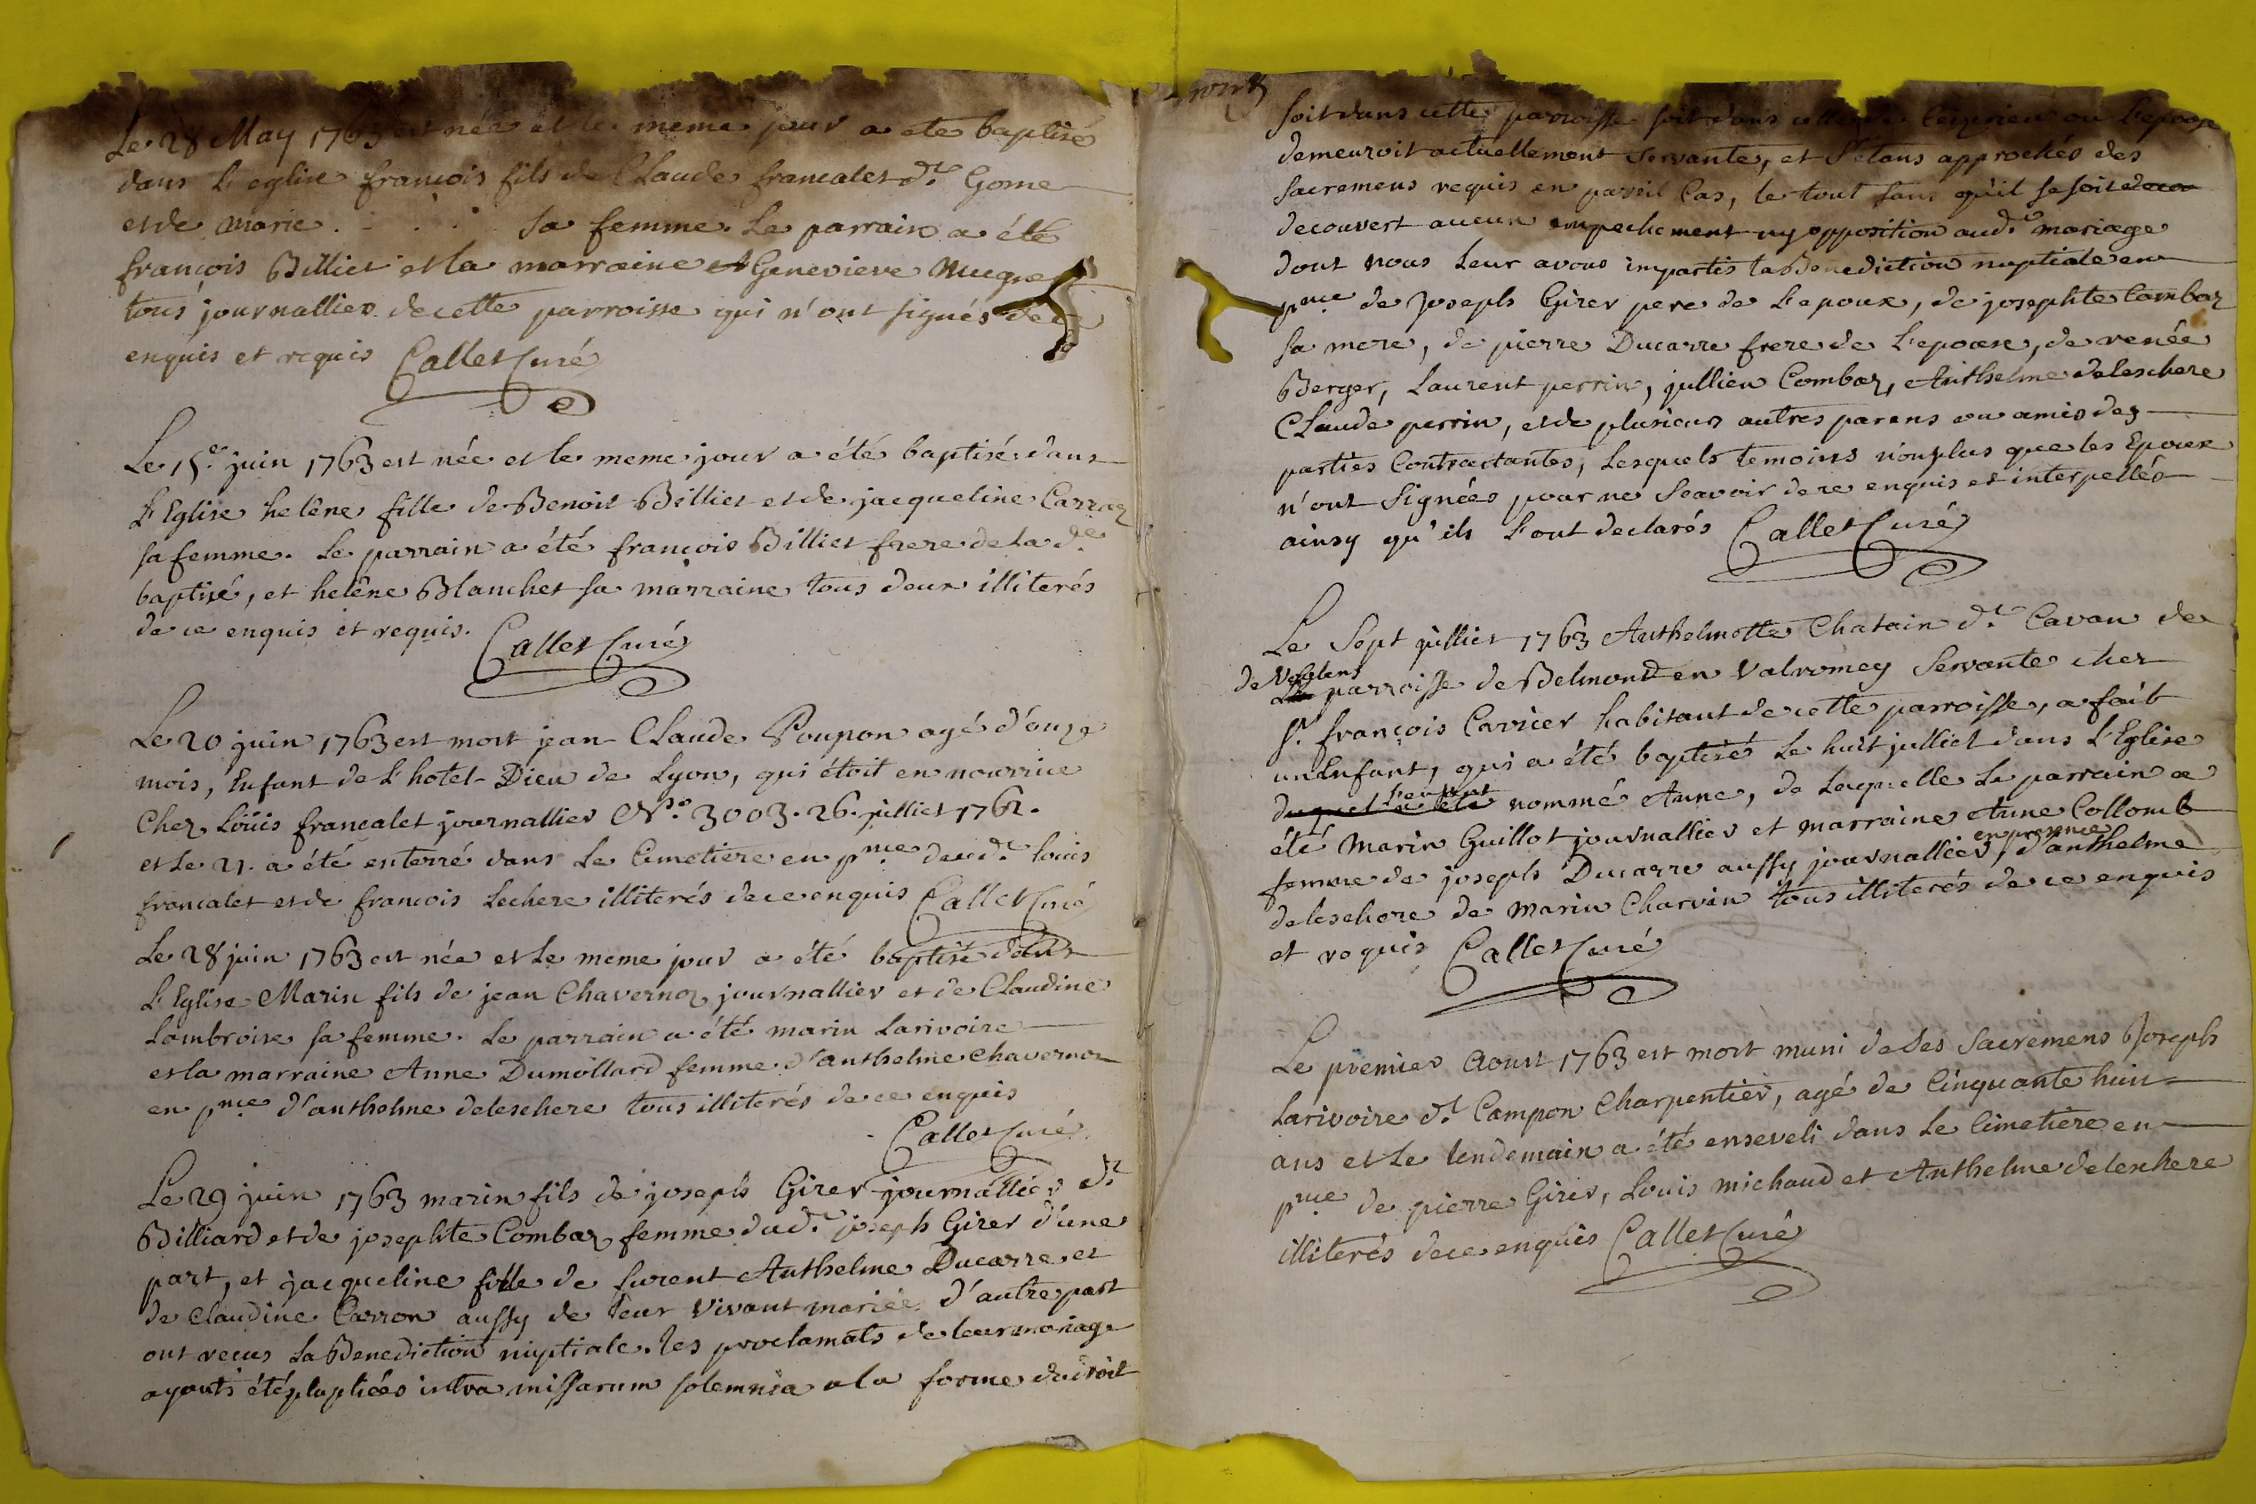 Le 28 May 1763 est née et le meme jour a ete baptisé
dans L'eglise françois fils de Claude francalet dt Gome
et de marie . . . . sa femme. Le parrain a été
françois Billiet et la marraine Genevieve
tous journallier de cette parroisse qui n'ont signés de ce
enquis et requis Callet Curé
Le 15e juin 1763 est née et le meme jour a été baptisé dans
L'Eglise helêne fille de Benoit Billiet et de jacqueline Carraz
sa femme. Le parrain a été françois Billiet frere de la de
baptisé, et helêne Blanchet sa marraine tous deux illiterés
de ce enquis et requis. Callet Curé
Le 20 juin 1763 est mort jean Claude Poupon agé d'onze
mois, Enfant de L'hotel-Dieu de Lyon, qui étoit en nourrice
Chez Loüis francalet journallier No. 3003. 26. juilliet 1762.
et Le 21. a été enterré dans Le Cimetiere en pnce dudt louis
francalet et de francois Lechere illiterés de ce enquis Callet Curé
Le 28 juin 1763 est née et Le meme jour a été baptisé dans
L'Eglise Marin fils de jean Chavernoz journallier et de Claudine
Lambroise sa femme. Le parrain a été marin Larivoire
et la marraine Anne Dumollard femme d'anthelme Chavernoz
en pnce d'anthelme deleschere tous illiterés de ce enquis
Callet Curé
Le 29 juin 1763 marin fils de joseph Girer journallier dt
Billiard et de josephte Combaz femme dudt joseph Girer d'une
part, et jacqueline fille de furent Anthelme Ducarre et
de Claudine Carron aussy de leur vivant mariée d'autre part
ont reçus La Benediction nuptiale. les proclamats de leur mariage
ayants été plupliées intra missarum solemnia a la forme du droit
soit dans cette parroisse soit dans celle de Ceyzrieu ou L'epoese
demeuroit actuellement servante, et s'etans approchés des
sacremens requis en pareil Cas, le tout sans qu'il se soit
decouvert aucun empechement ny opposition audt mariage
dont nous leur avons impartis la Benediction nuptiale en
pnce de joseph Girer pere de L'epoux, de josephte Combaz
sa mere, de pierre Ducarre frere de L'epoese, de renée
Berger, Laurent perrin, jullien Combaz, Anthelme deleschere
Claude perrin, et de plusieurs autres parens ou amis des
parties Contractantes, Lesquels temoins nonplus que les Epoux
n'ont signées pour ne sçavoir de ce enquis et interpellés
ainsy qu'ils L'ont declarés Callet Curé
Le Sept jüilliet 1763 Anthelmette Chatain dt Cavan de
parroisse de Belmond en Valromey Servante chez
sr françois Carrier habitant de cette parroisse, a fait
un Enfant, qui a été baptisé Le huit julliet dans L'Eglise
duquel a été nommé Anne, de Laquelle Le parrain a
été Marin Guillot journallier et marraine Anne Collomb
femme de joseph Ducarre aussy journallier, en presence d'anthelme
deleschere de marin Charvin tous illiterés de ce enquis
et requis Callet Curé
Le premier aoust 1763 est mort muni de Ses Sacremens Joseph
Larivoire dt Campon Charpentier, agé de Cinquante huit
ans et Le lendemain a été enseveli dans Le Cimetiere en
pnce de pierre Girer, Louis michaud et Anthelme deleschere
illiterés de ce enquis Callet Curé